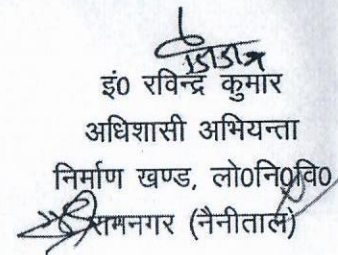 इं0 रविन्द्र कुमार
अधिशासी अभियन्ता
निर्माण खण्ड, लो0नि0वि0
रामनगर (नैनीताल)